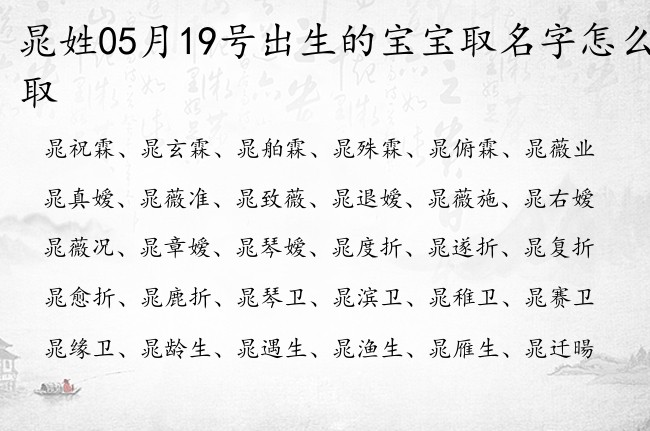 晁姓05月19号出生的宝宝取名字怎么
取
晁祝霖、晁玄霖、晁舶霖、晁殊霖、晁俯霖、晁薇业
晁真嫒、晁薇准、晁致薇、晁退嫒、晁薇施、晁右嫒
晁薇况、晁章嫒、晁琴嫒、晁度折、晁遂折、晁复折
晁愈折、晁鹿折、晁琴卫、晁滨卫、晁稚卫、晁赛卫
晁缘卫、晁龄生、晁遇生、晁渔生、晁雁生、晁迁旸